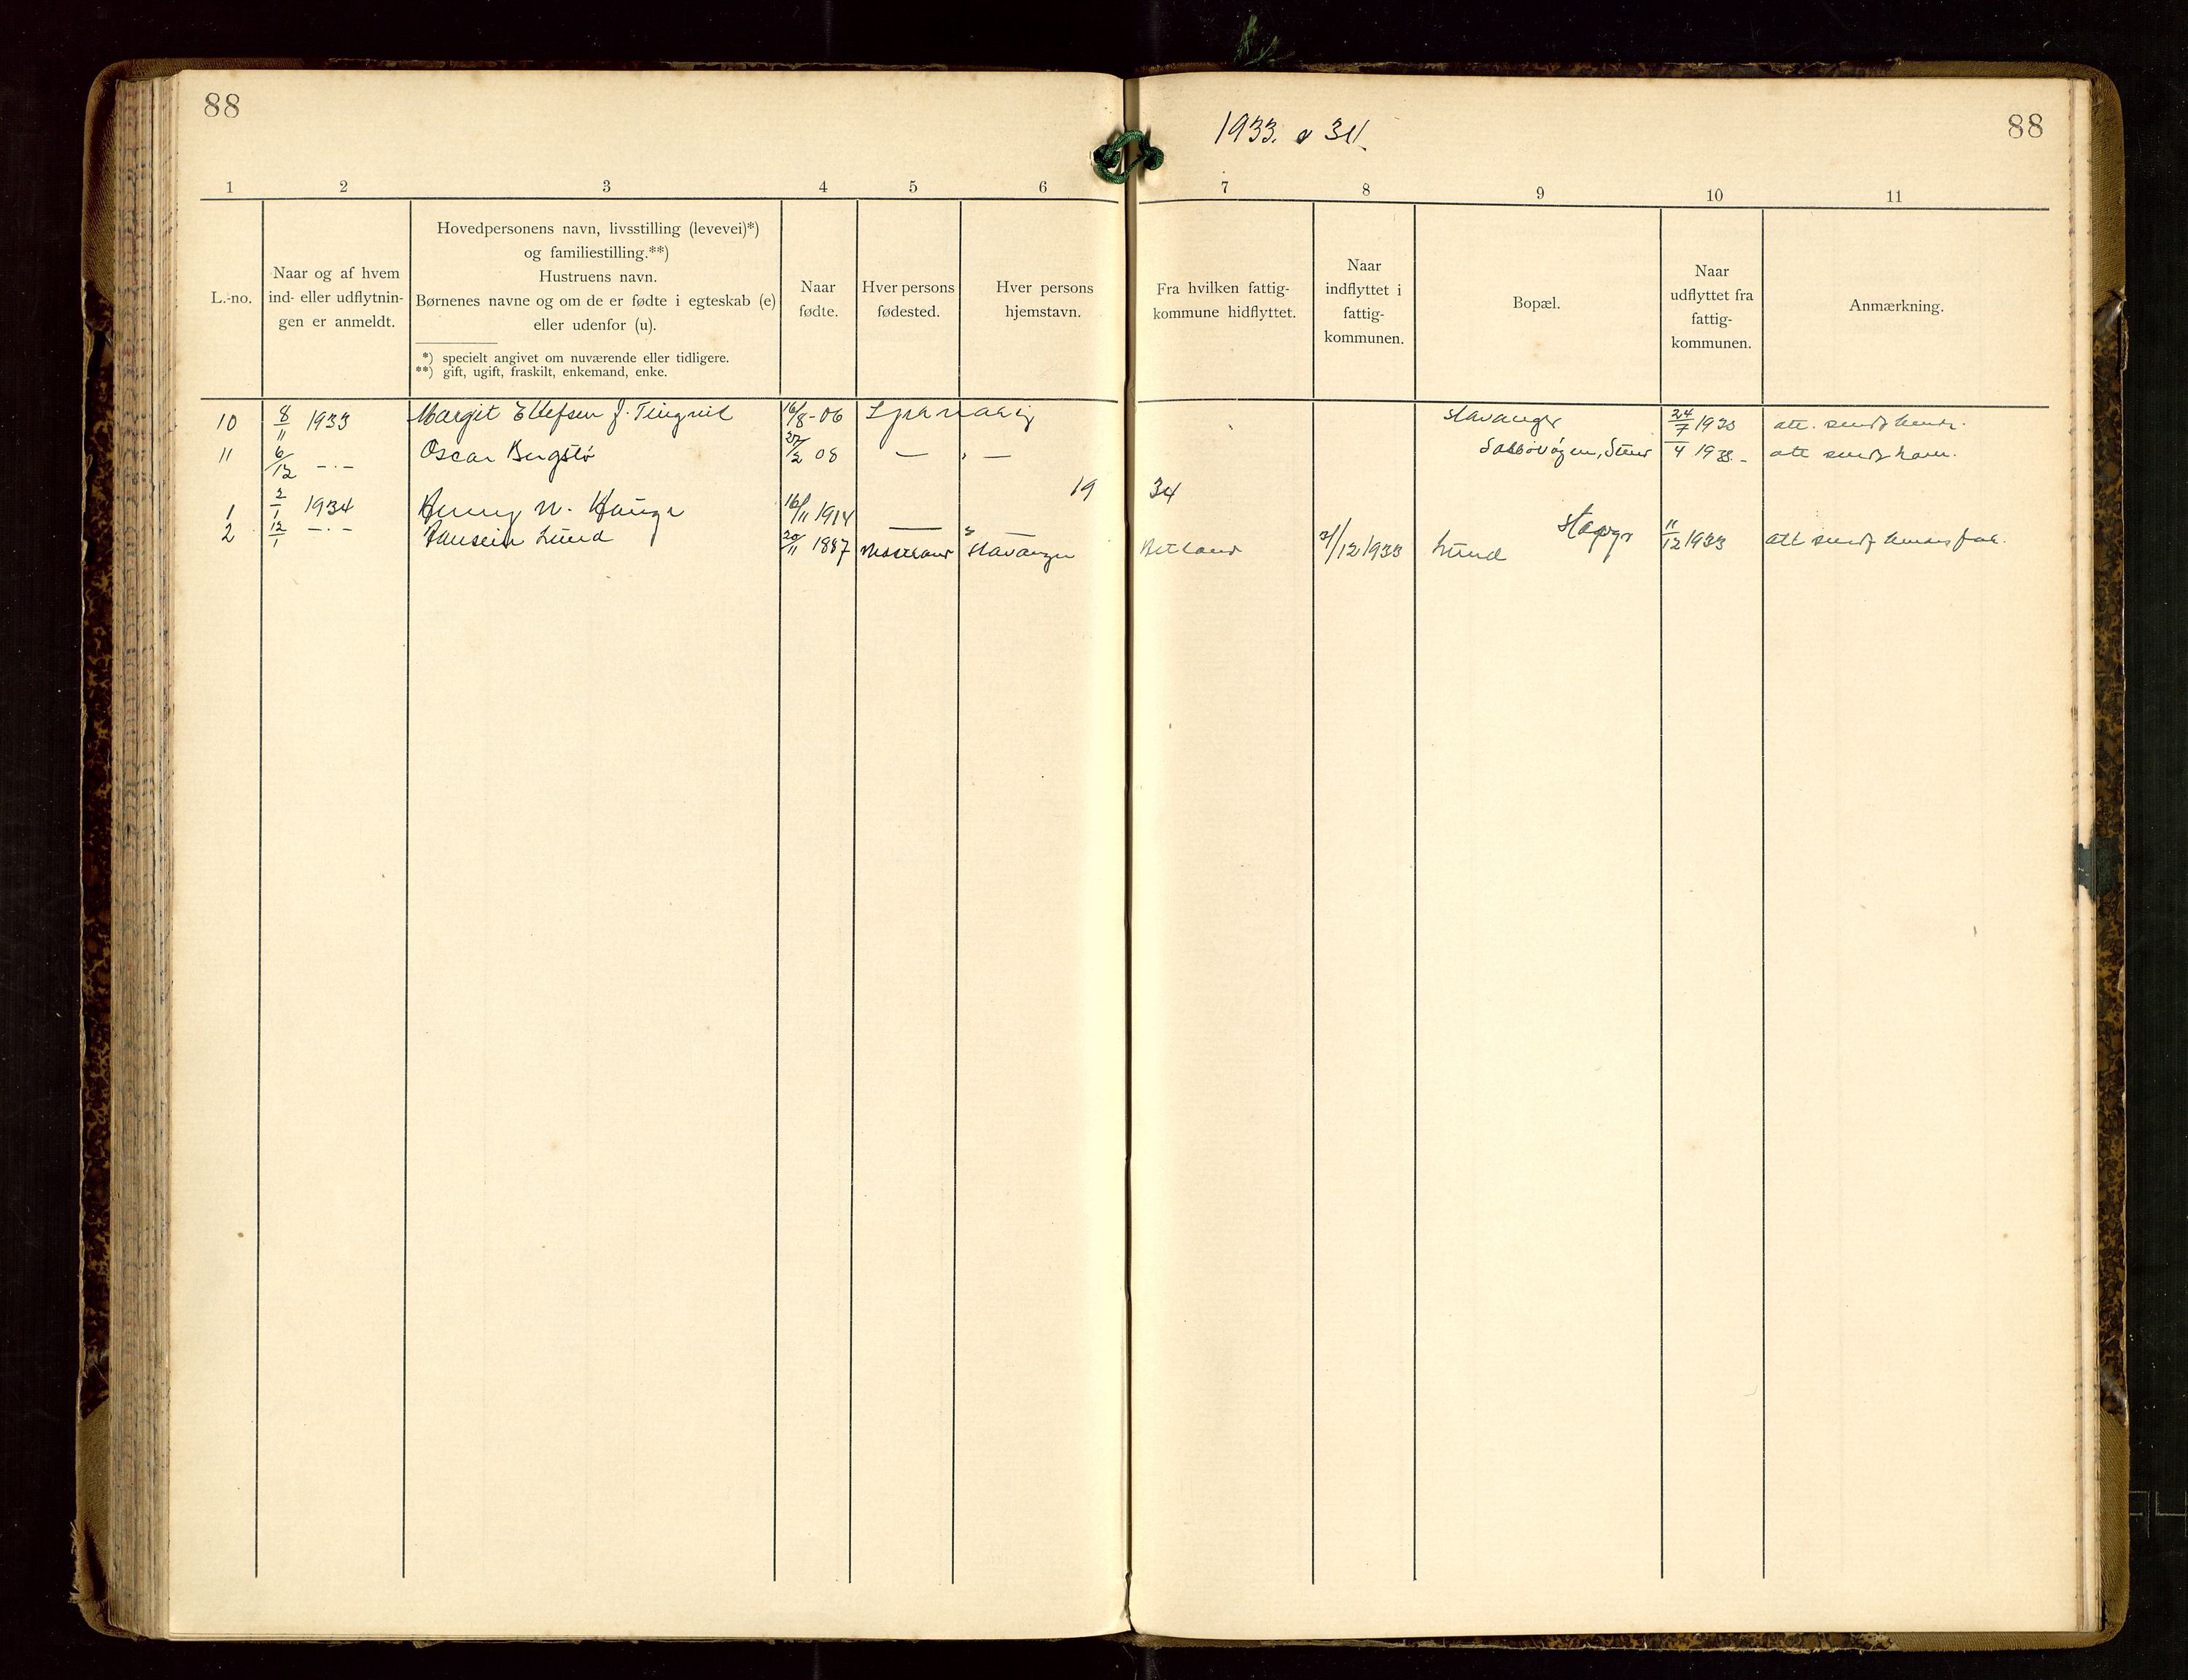 88
1933. & 34.
88
1 2 3 4 5 6 7 8 9 10 11
L.-no.
Naar og af hvem
ind- eller udflytnin-
gen er anmeldt.
Hovedpersonens navn, livsstilling (levevei)*)
og familiestilling.**)
Hustruens navn.
Børnenes navne og om de er fødte i egteskab (e)
eller udenfor (u).
*) specielt angivet om nuværende eller tidligere.
**) gift, ugift, fraskilt, enkemand, enke.
Naar
fødte.
Hver persons
fødested.
Hver persons
hjemstavn.
Fra hvilken fattig-
kommune hidflyttet.
Naar
indflyttet i
fattig-
kommunen.
Bopæl.
Naar
udflyttet fra
fattig-
kommunen.
Anmærkning.
10 8/11 1933 Margit Ellefsen f. Tingvik 16/8-06 Stavanger 24/7 1933 att.
11 6/12 -·- Oscar Bergstø 27/2 08 — — 4 1933.- att
19 34
1 2/1 1934 Henny N. Hauge 16/11 1914 — — Stavgr 11/12 1933 att
2 12/1 -·- Lund 20/11 1887 Stavanger Hetland /12 1933 Lund